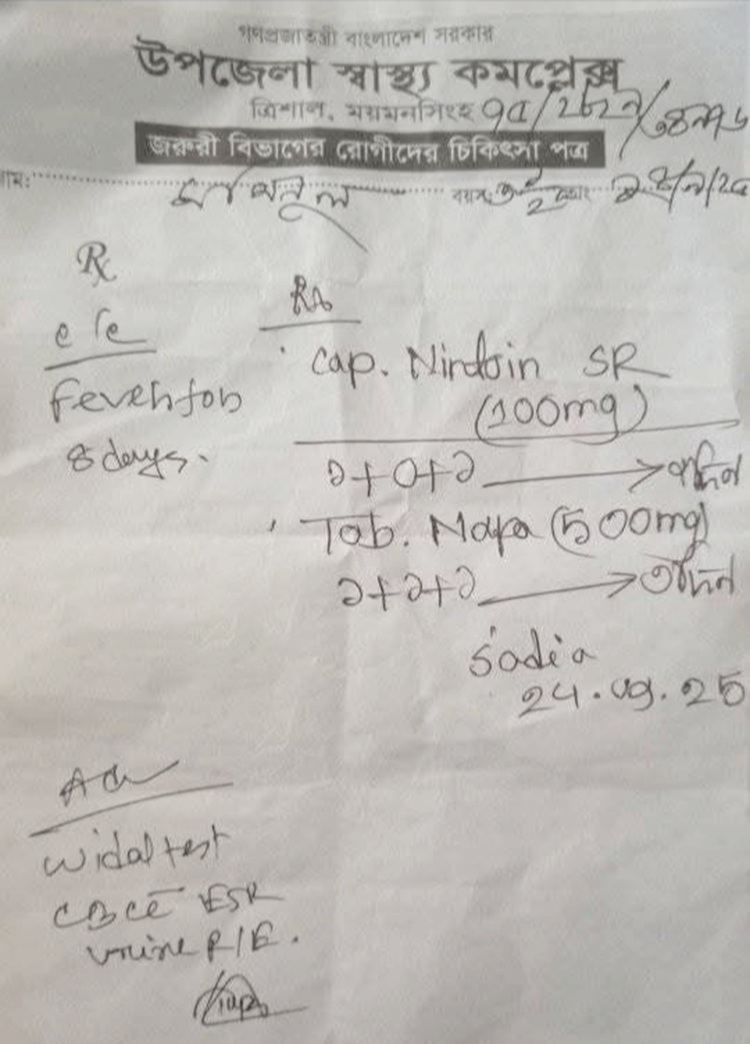 গণপ্রজাতন্ত্রী বাংলাদেশ সরকার
উপজেলা স্বাস্থ্য কমপ্লেক্স
ত্রিশাল, ময়মনসিংহ
জরুরী বিভাগের রোগীদের চিকিৎসা পত্র
নাম: বয়স
Rx
c/c
Fever for
8 days.
Rx
Cap. Nirdoin SR
(100mg)
১+০+১ → ৭দিন
Tab. Napa (500mg)
১+১+১ → ৩দিন
Sadia
24.09.25
Adv
Widal test
CBC c̄ ESR
Urine R/E.